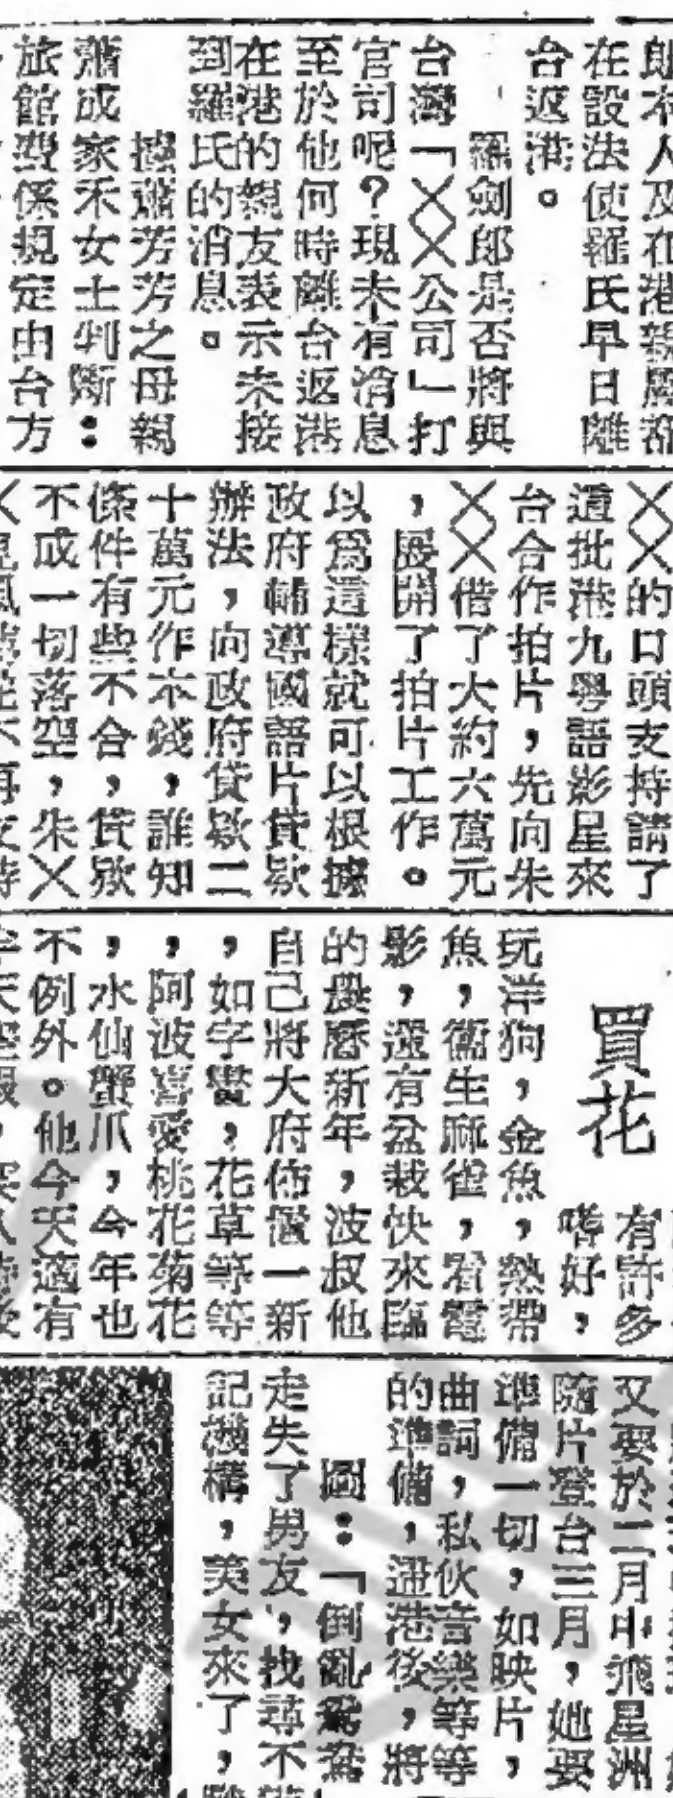 郎本人及在港親屬都
在設法使羅氏早日離
台返港。
羅劍郎是否將與
台灣「╳╳公司」打
官司呢？現未有消息
至於他何時離台返港
在港的親友表示未接
到羅氏的消息。
據蕭芳芳之母親
蕭成家禾女士判斷：
旅館費係規定由台方
╳╳的口頭支持請了
這批港九粵語影星來
台合作拍片，先向朱
╳╳借了大約六萬元
，展開了拍片工作。
以爲這樣就可以根據
政府輔導國語片貸欵
辦法，向政府貸欵二
十萬元作本錢，誰知
條件有些不合，貸欵
不成一切落空，朱╳
買花
有許多
嗜好，
玩洋狗，金魚，熱帶
魚，養生麻雀，看電
影，還有盆栽快來臨
的農曆新年，波叔他
自己將大府佈置一新
，如字畫，花草等等
，阿波喜愛桃花菊花
，水仙蟹爪，今年也
不例外。他今天適有
又要於二月中飛星洲
隨片登台三月，她要
準備一切，如映片，
曲詞，私伙音樂等等
的準備，返港後，將
圖：「倒亂鴛鴦
走失了男友，找尋不
記機構，美女來了，